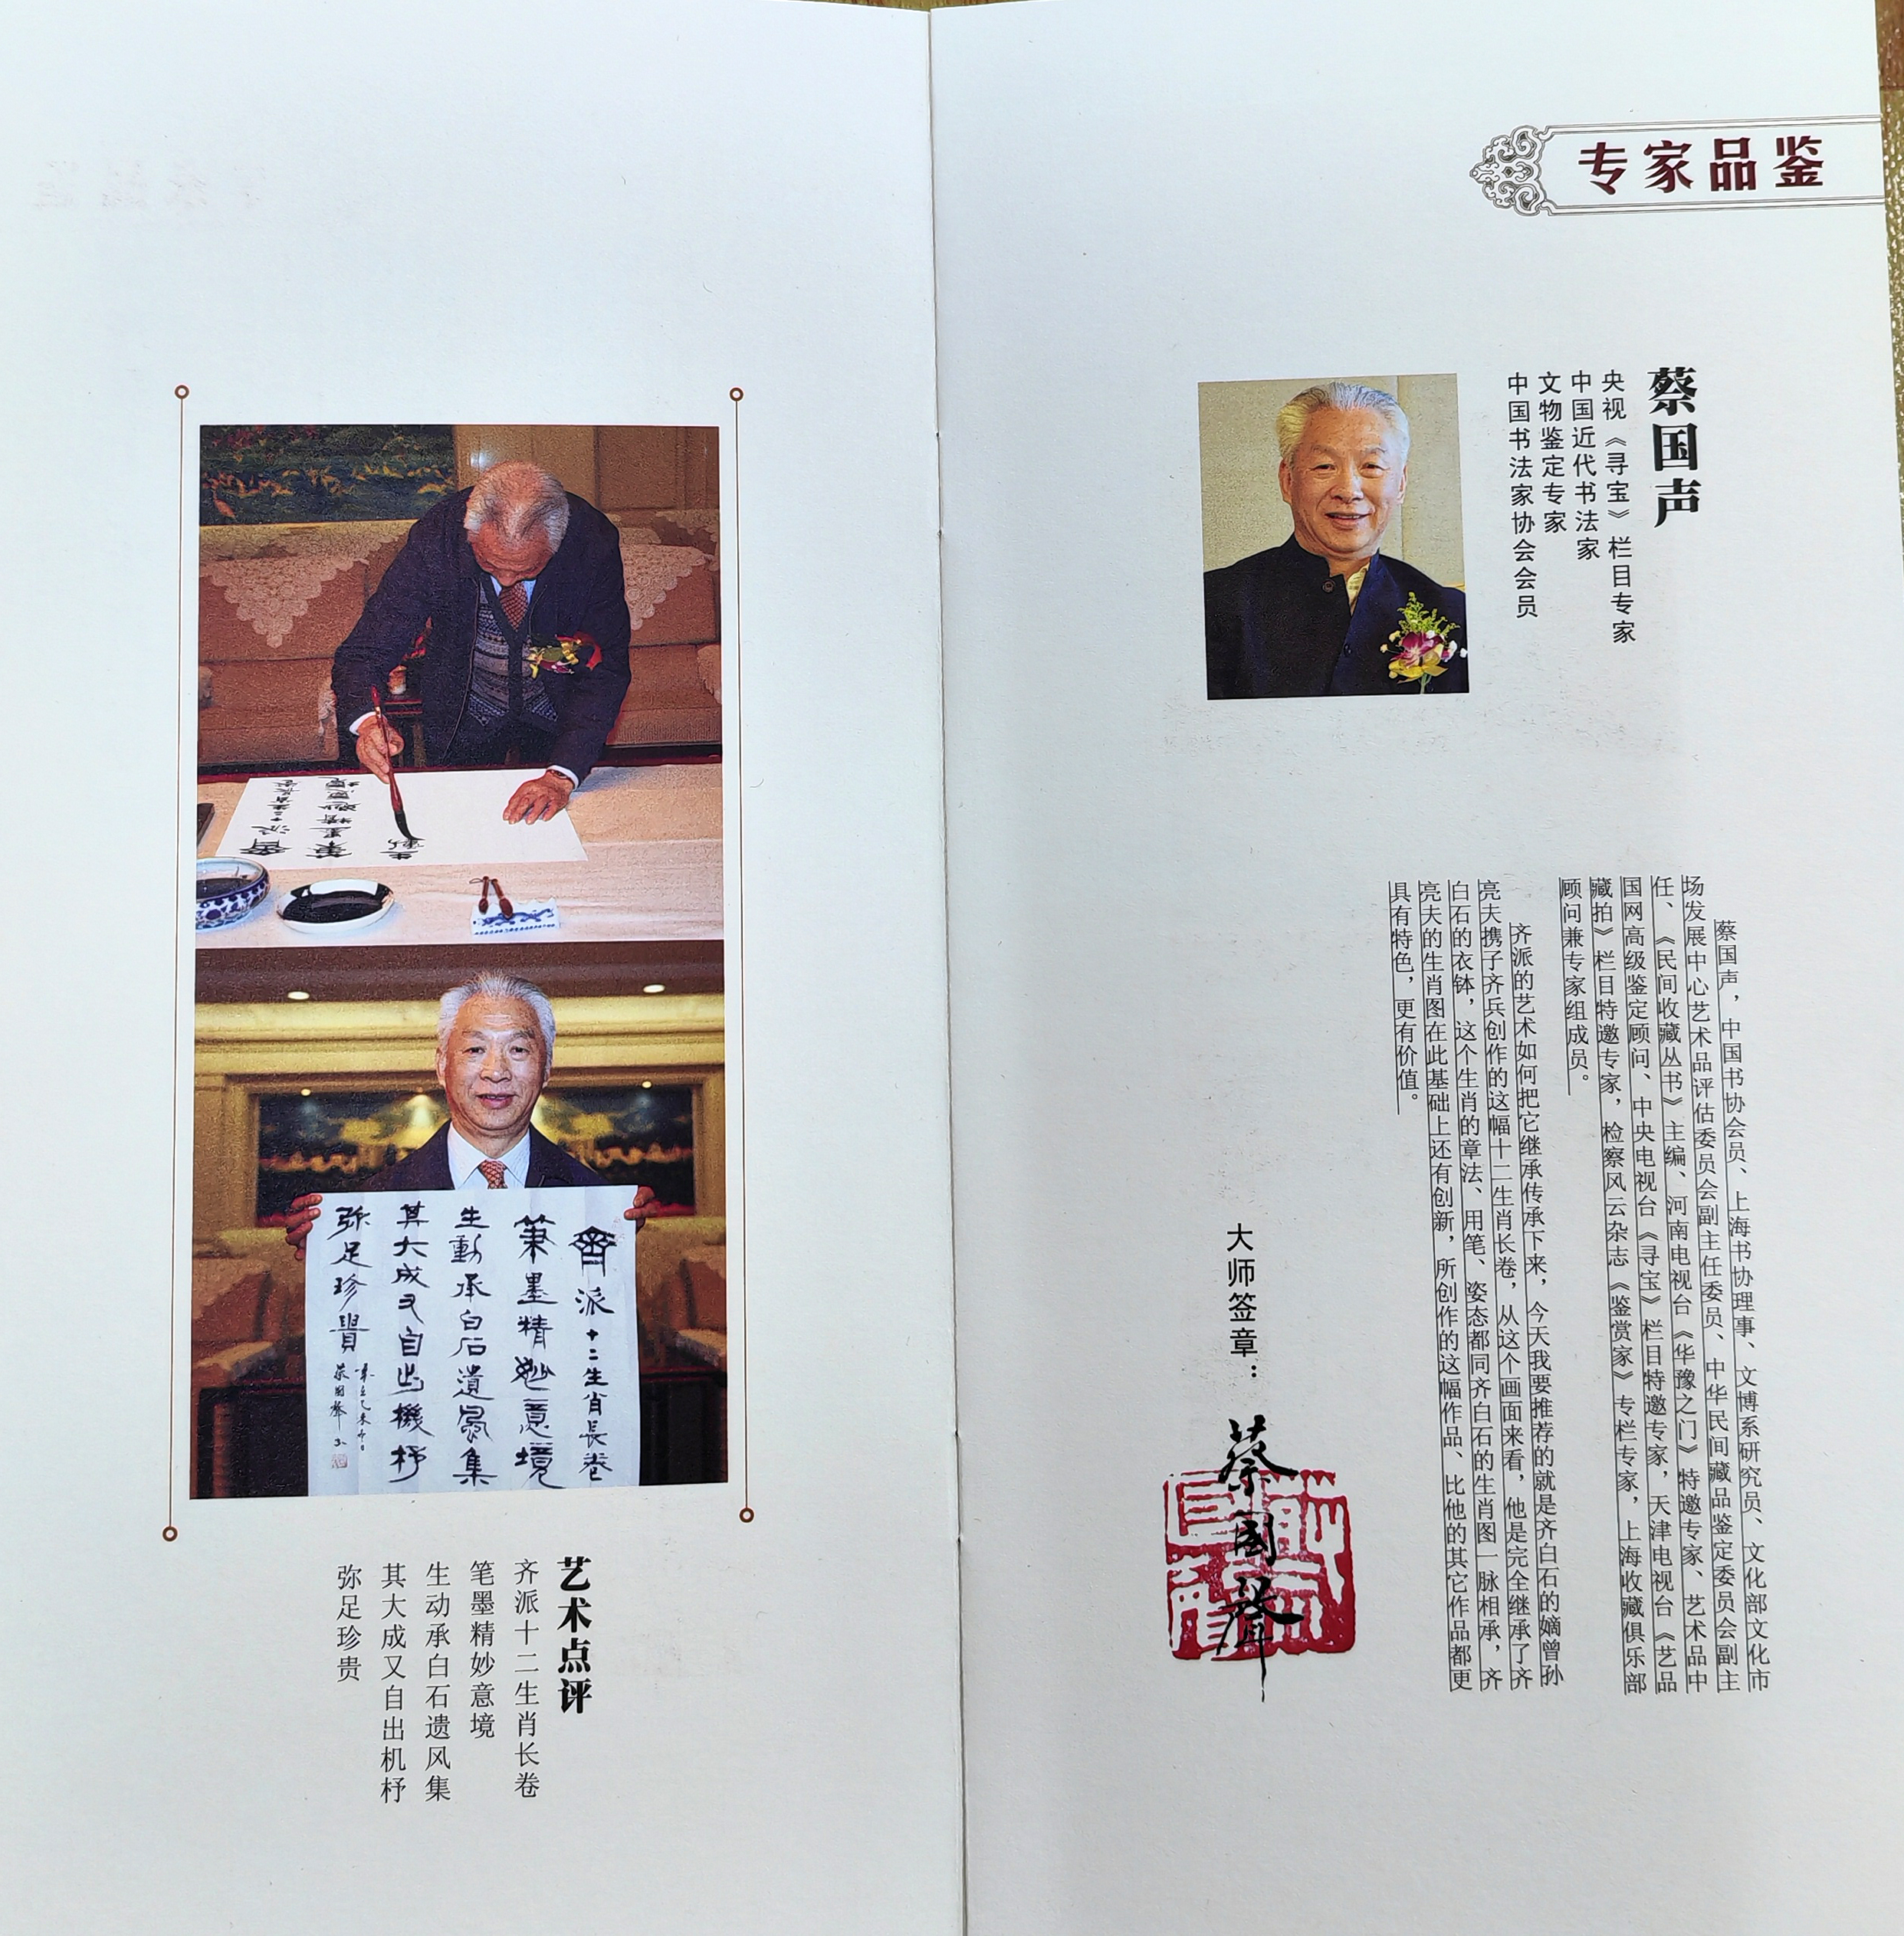 专家品鉴
蔡国声
央视《寻宝》栏目专家
中国近代书法家
文物鉴定专家
中国书法家协会会员
蔡国声，中国书协会员、上海书协理事、文博系研究员、文化部文化市
场发展中心艺术品评估委员会副主任委员、中华民间藏品鉴定委员会副主
任、《民间收藏丛书》主编、河南电视台《华豫之门》特邀专家、艺术品中
国网高级鉴定顾问、中央电视台《寻宝》栏目特邀专家，天津电视台《艺品
藏拍》栏目特邀专家，检察风云杂志《鉴赏家》专栏专家，上海收藏俱乐部
顾问兼专家组成员。
齐派的艺术如何把它继承传承下来，今天我要推荐的就是齐白石的嫡曾孙
亮夫携子齐兵创作的这幅十二生肖长卷，从这个画面来看，他是完全继承了齐
白石的衣钵，这个生肖的章法、用笔、姿态都同齐白石的生肖图一脉相承，齐
亮夫的生肖图在此基础上还有创新，所创作的这幅作品、比他的其它作品都更
具有特色，更有价值。
大师签章：
蔡國聲
齊派十二生肖長卷
筆墨精妙意境
生動承白石遺風集
其大成又自出機杼
弥足珍貴
蔡國聲
艺术点评
齐派十二生肖长卷
笔墨精妙意境
生动承白石遗风集
其大成又自出机杼
弥足珍贵